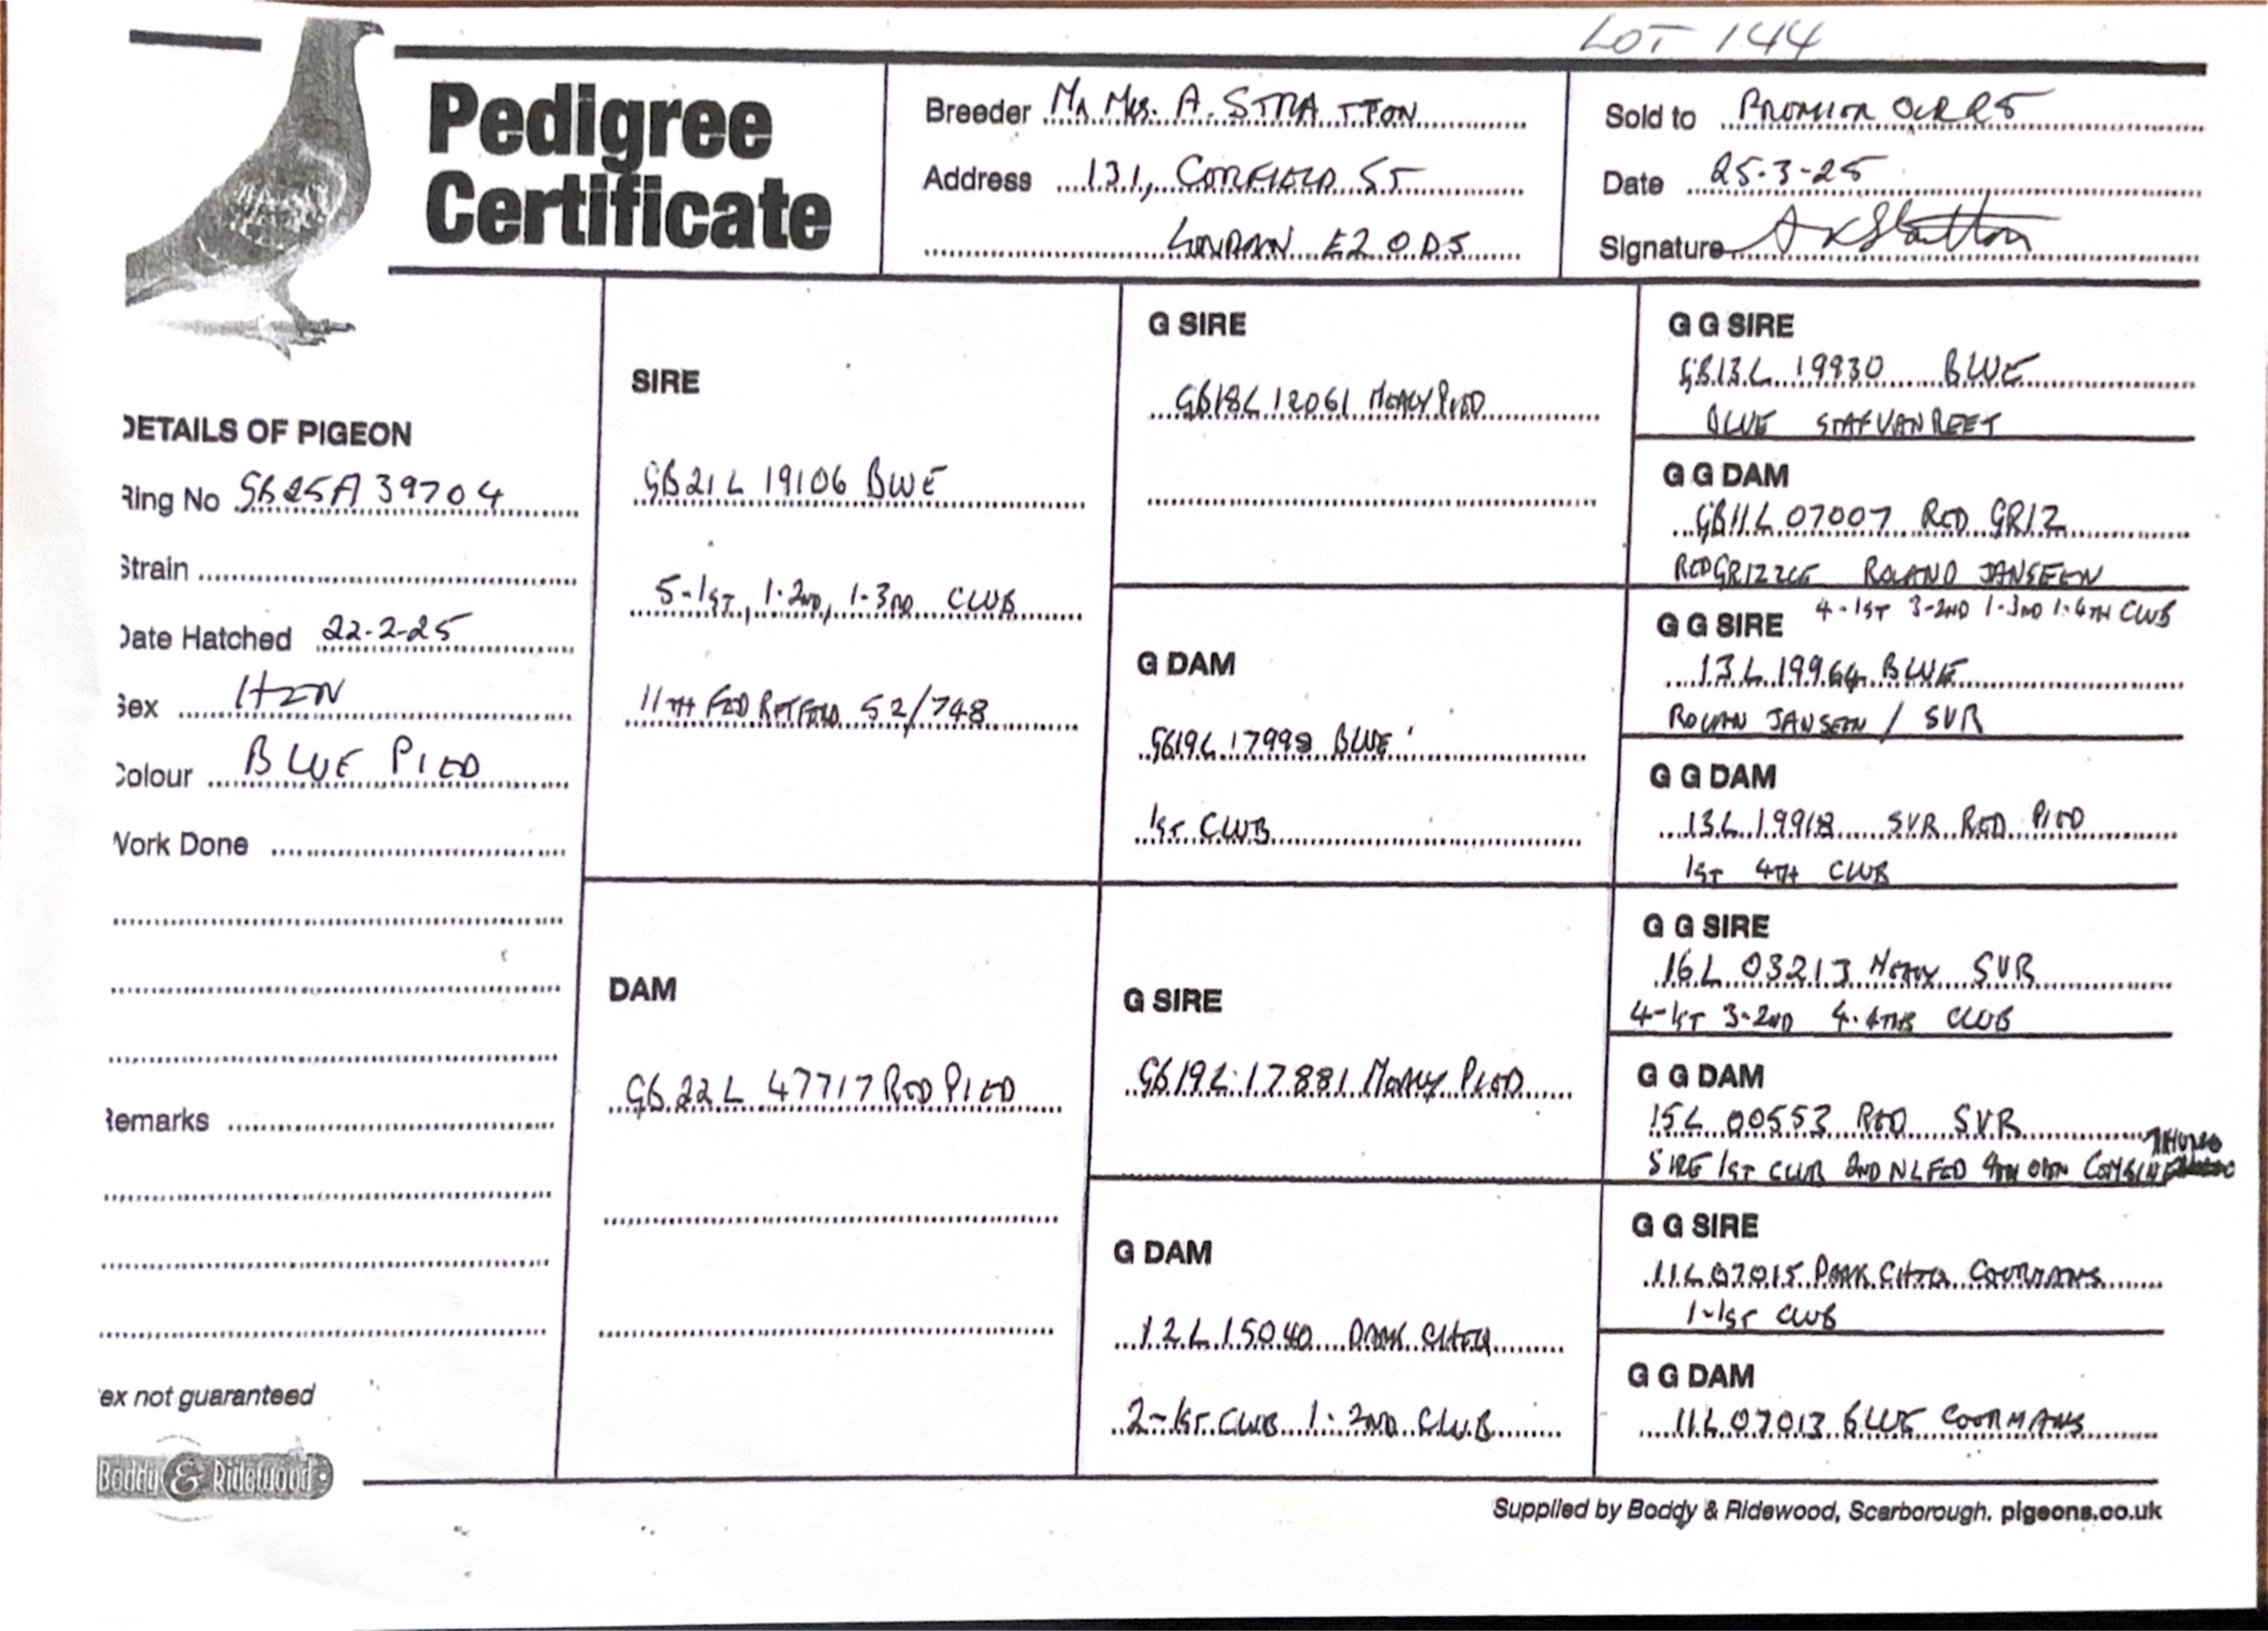 LOT 144
Pedigree
Certificate
Breeder Mr Mrs. A. STRATTON
Address 131, CORFIELD ST
LONDON E2 0DS
Sold to
Date 25-3-25
Signature A Stratton
DETAILS OF PIGEON
Ring No GB25A39704
Strain
Date Hatched 22-2-25
Sex HEN
Colour BLUE PIED
Work Done
Remarks
ex not guaranteed
Boddy & Ridewood
SIRE
GB21L 19106 BLUE
5-1ST, 1-2ND, 1-3RD CLUB
11TH FED RETFORD 52/748
DAM
GB22L 47717 RED PIED
G SIRE
GB18L12061 MEALY PIED
G DAM
GB19L 17998 BLUE
1ST CLUB
G SIRE
GB19L 17881 MEALY PIED
G DAM
12L15040 DARK CHEQ
2-1ST CLUB 1-2ND CLUB
G G SIRE
GB13L 19930 BLUE
BLUE STAF VAN REET
G G DAM
GB11L 07007 RED GRIZ
RED GRIZZLE ROLAND JANSEEN
4-1ST 3-2ND 1-3RD 1-4TH CLUB
G G SIRE
13L 19964 BLUE
JANSEEN / SVR
G G DAM
13L 19918 SVR RED PIED
1ST 4TH CLUB
G G SIRE
16L 03213 MEALY SVR
4-1ST 3-2ND 4-4THS CLUB
G G DAM
15L 00553 RED SVR
SIRE 1ST CLUB 2ND NL FED 4TH OPEN COMBINE
G G SIRE
11L07015 DARK CHEQ COORMANS
1-1ST CLUB
G G DAM
11L07013 BLUE COORMANS
Supplied by Boddy & Ridewood, Scarborough. pigeons.co.uk